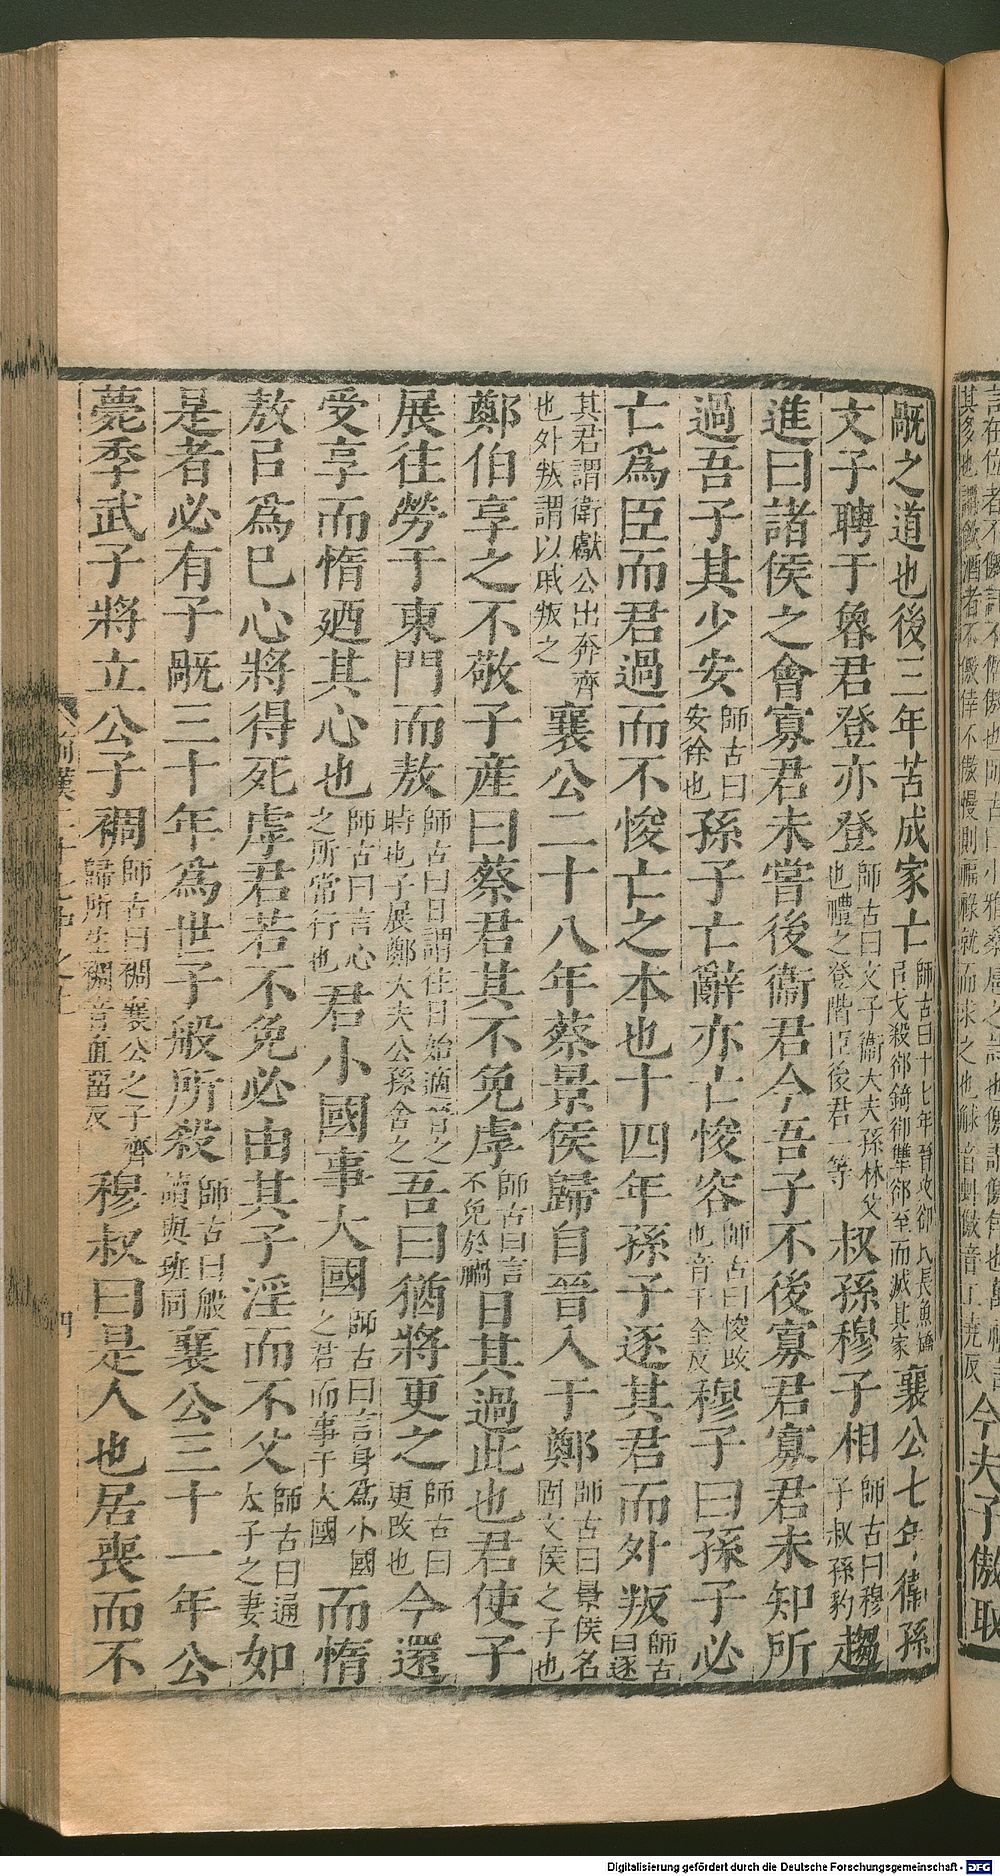 言在位者不儌訐不倨傲也師古曰小雅桑扈之詩也儌謂儌幸也萬福
其多也謂飲酒者不儌倖不傲慢則福祿就而求之也觩音虯儌音工堯反
今夫子傲取
旤之道也後三年苦成家亡師古曰十七年晉攻郤氏長魚矯
㠯戈殺郤錡郤犨郤至而滅其家襄公七年衞孫
文子聘于魯君登亦登師古曰文子衞大夫孫林父
也禮之登階臣後君一等叔孫穆子相師古曰穆
子叔孫豹趨
進曰諸侯之會寡君未嘗後衞君今吾子不後寡君寡君未知所
過吾子其少安師古曰
安徐也孫子亡辭亦亡悛容師古曰悛改
也音千全反穆子曰孫子必
亡爲臣而君過而不悛亡之本也十四年孫子逐其君而外叛師古
曰逐
其君謂衛獻公出奔齊
也外叛謂以戚叛之襄公二十八年蔡景侯歸自晉入于鄭師古曰景侯名
固文侯之子也
鄭伯享之不敬子產曰蔡君其不免虖師古曰言
不免於禍日其過此也君使子
展往勞于東門而敖師古曰日謂往日始適晉之
時也子展鄭大夫公孫舍之吾曰猶將更之師古曰
更改也今還
受享而惰廼其心也師古曰言心
之所常行也君小國事大國師古曰言身爲小國
之君而事于大國而惰
敖㠯爲己心將得死虖君若不免必由其子淫而不父師古曰通
太子之妻如
是者必有子旤三十年爲世子般所殺師古曰般
讀與班同襄公三十一年公
薨季武子將立公子裯師古曰裯襄公之子齊
歸所生裯音直留反穆叔曰是人也居喪而不
四
Digitalisierung gefördert durch die Deutsche Forschungsgemeinschaft - DFG